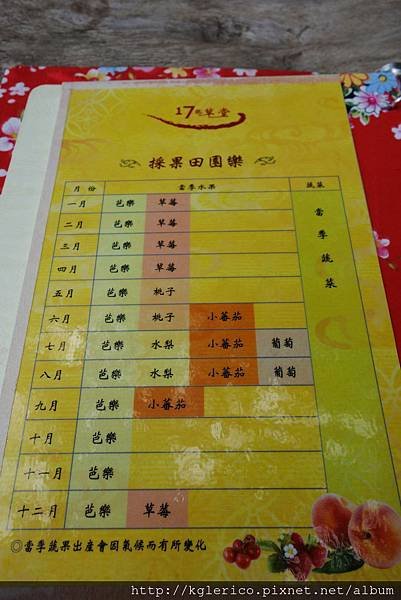 17號草堂
採果田園樂
月份 當季水果 蔬菜
一月 芭樂 草莓
二月 芭樂 草莓
三月 芭樂 草莓
四月 芭樂 草莓
五月 芭樂 桃子
六月 芭樂 桃子 小蕃茄
七月 芭樂 水梨 小蕃茄 葡萄
八月 芭樂 水梨 小蕃茄 葡萄
九月 芭樂 小蕃茄
十月 芭樂
十一月 芭樂
十二月 芭樂 草莓
當季蔬菜
◎當季蔬果出產會因氣候而有所變化
http://kglerico.pixnet.net/album